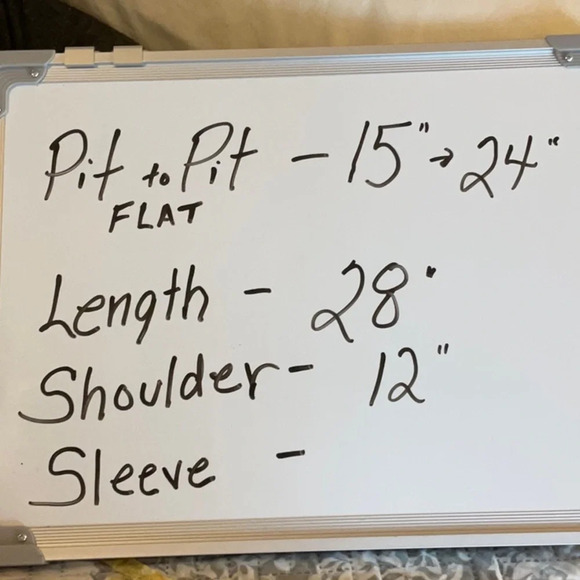 Pit to Pit - 15" → 24"
FLAT
Length - 28"
Shoulder - 12"
Sleeve -